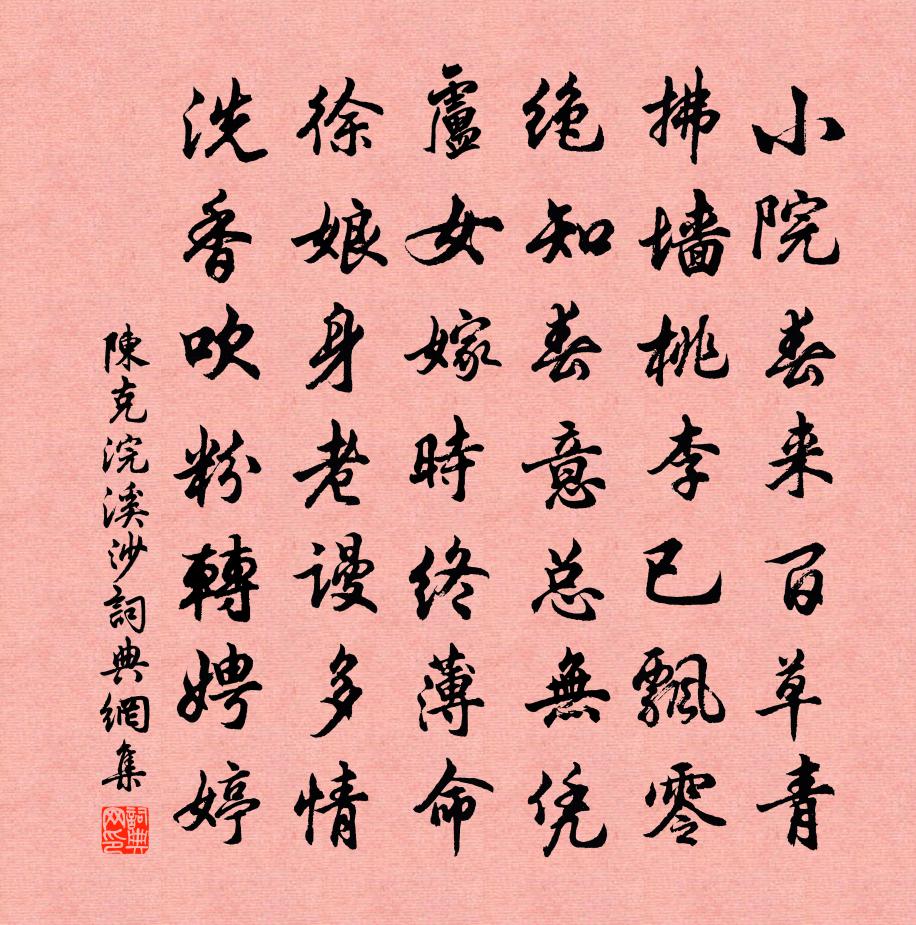 小院春来百草青
拂墙桃李已飘零
绝知春意总無凭
盧女嫁時终薄命
徐娘身老谩多情
洗香吹粉轉娉婷
陳克浣溪沙詞典網集
詞典网印